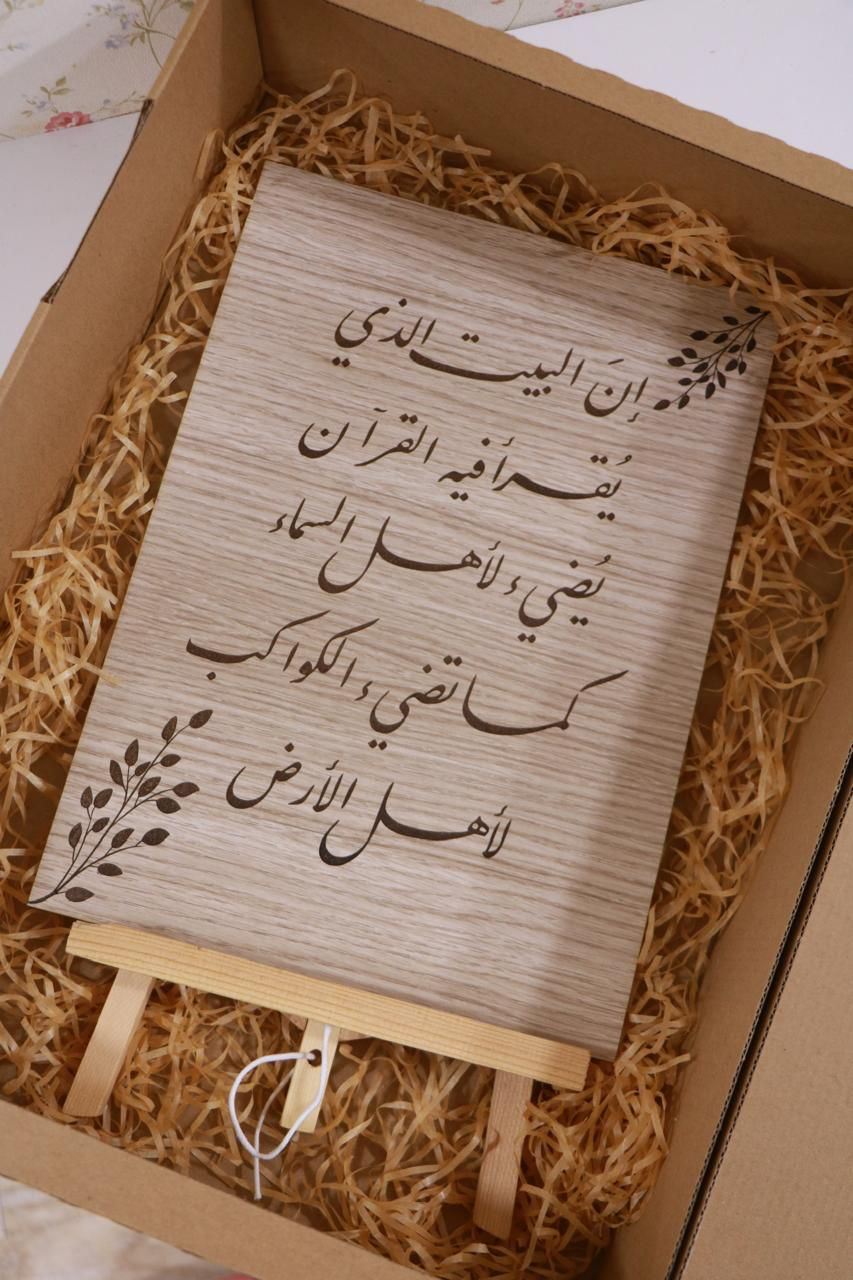 إنَ البيت الذي
يُقرأ فيه القرآن
يُضيء لأهل السماء
كما تضيء الكواكب
لأهل الأرض